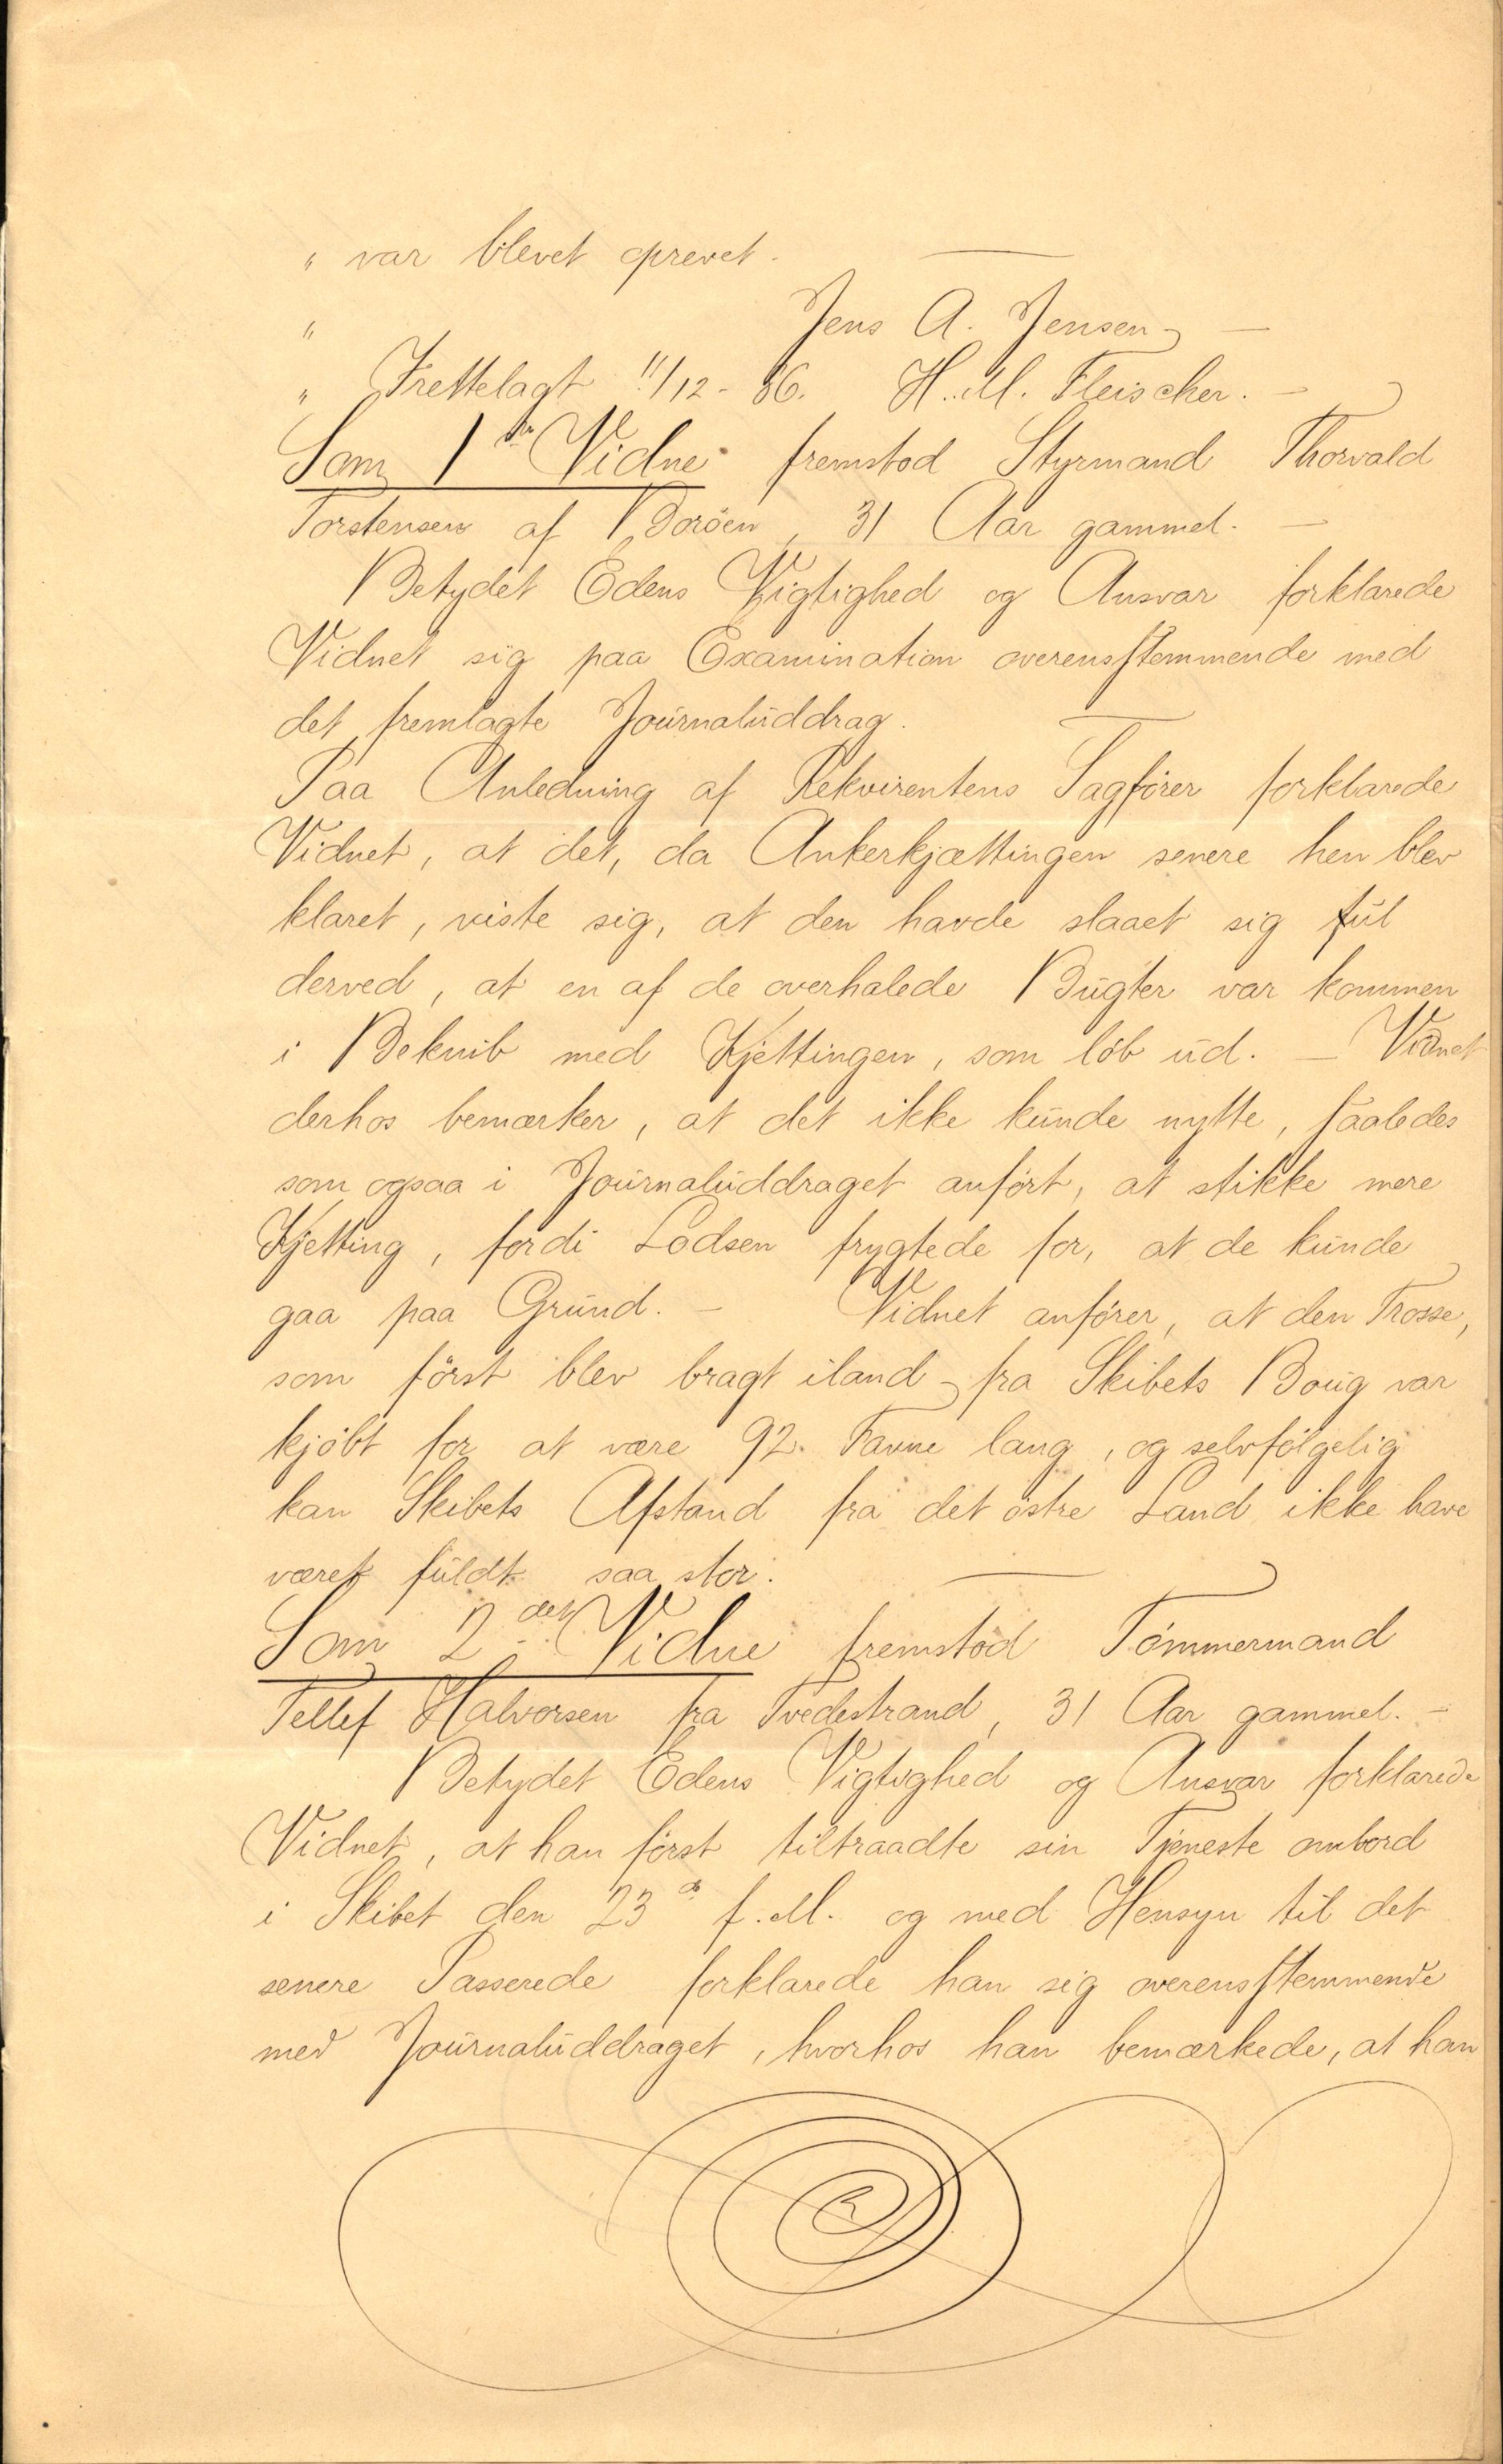 „ var blevet oprevet. —
„ Jens A. Jensen —
„ Frettelagt 11/12-86. H. M. Fleischer. —
Som 1ste Vidne fremstod Styrmand Thorvald
Torstensen af Borøen, 31 Aar gammel. —
Betydet Edens Vigtighed og Ansvar forklarede
Vidnet sig paa Examination overensstemmende med
det fremlagte Journaluddrag. —
Paa Anledning af Rekvirentens Sagfører forklarede
Vidnet, at det, da Ankerkjættingen senere hen blev
klaret, viste sig, at den havde slaaet sig ful
derved, at en af de overhalede Bugter var kommen
i Beknib med Kjettingen, som løb ud. — Vidnet
derhos bemærker, at det ikke kunde nytte, saaledes
som ogsaa i Journaluddraget anført, at stikke mere
Kjetting, fordi Lodsen frygtede for, at de kunde
gaa paa Grund. — Vidnet anfører, at den Trosse,
som først blev bragt iland fra Skibets Boug var
kjøbt for at være 92 Favne lang, og selvfølgelig
kan Skibets Afstand fra det østre Land ikke have
været fuldt saa stor. —
Som 2det Vidne fremstod Tømmermand
Tellef Halvorsen fra Tvedestrand, 31 Aar gammel. —
Betydet Edens Vigtighed og Ansvar forklarede
Vidnet, at han først tiltraadte sin Tjeneste ombord
i Skibet den 23de f. M. og med Hensyn til det
senere Passerede forklarede han sig overensstemmende
med Journaluddraget, hvorhos han bemærkede, at han